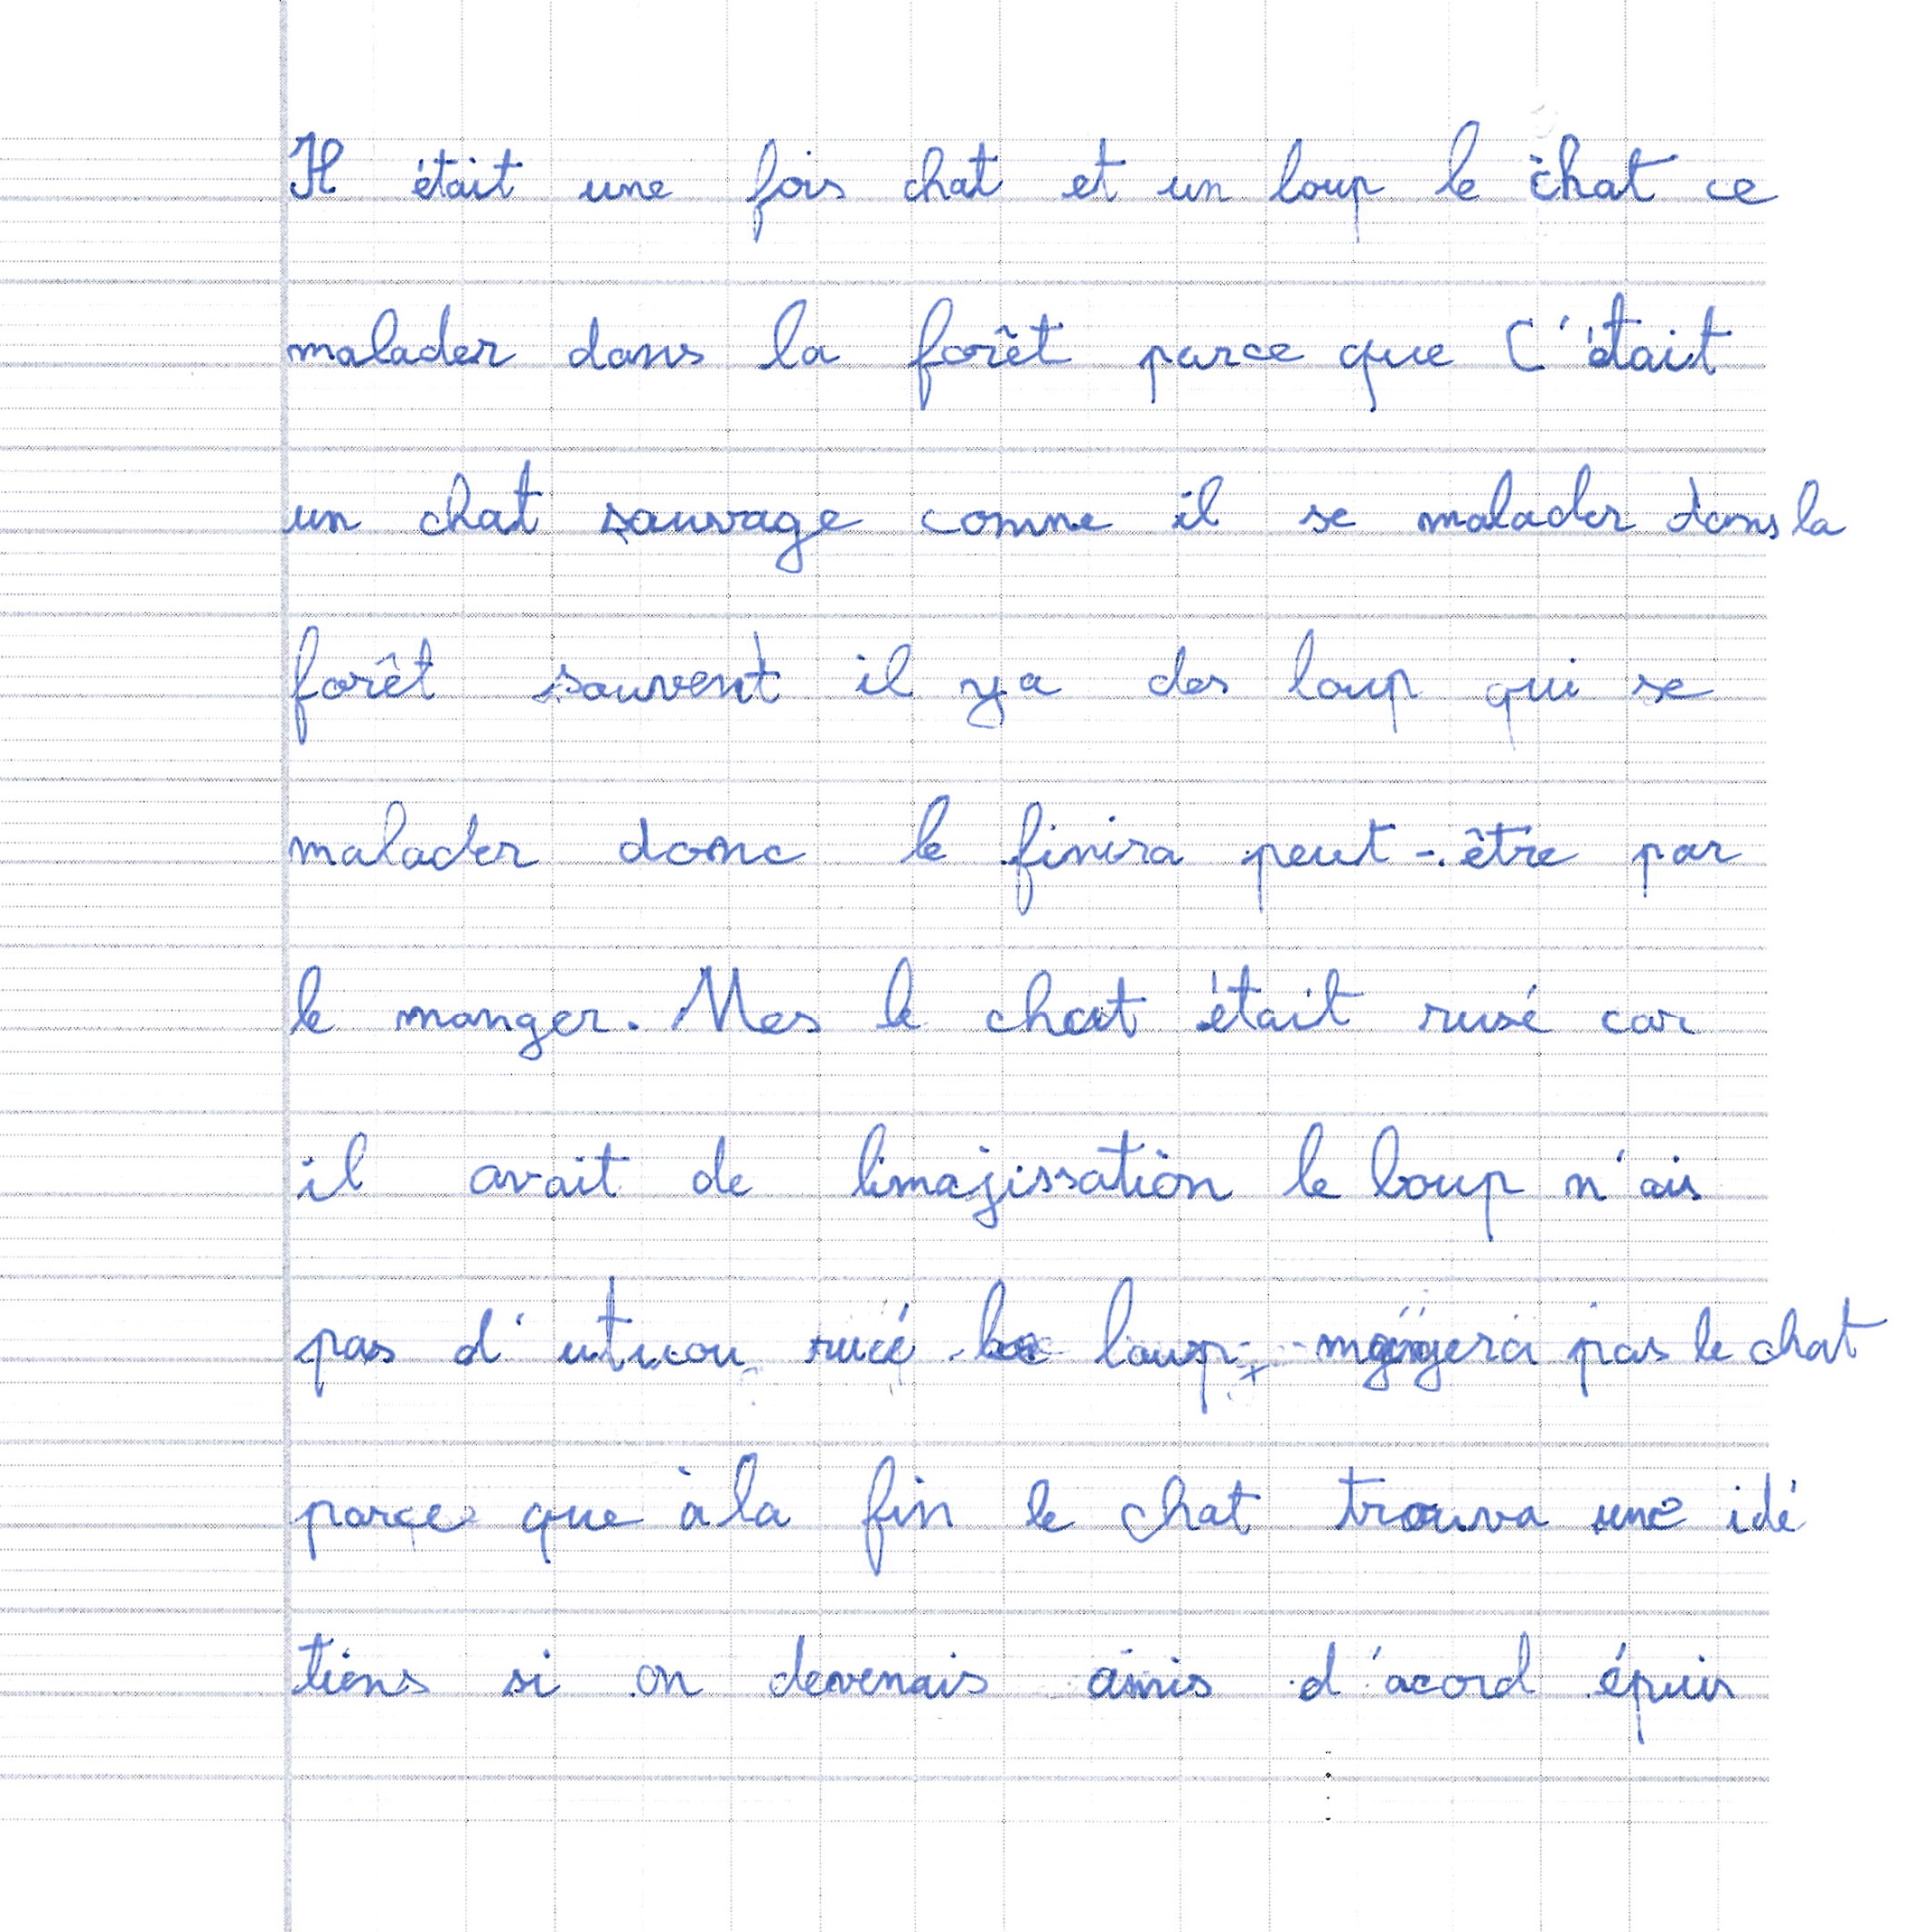 Il était une fois chat et un loup le chat ce
malader dans la forêt parce que C'était
un chat sauvage comme il se malader dans la
forêt souvent il ya des loup qui se
malader donc le finira peut-être par
le manger. Mes le chat était rusé car
il avait de limajissation le loup n'ais
pas d' rucé le loup mangera pas le chat
parce que à la fin le chat trouva une idé
tiens si on devenais amis d'acord épuis